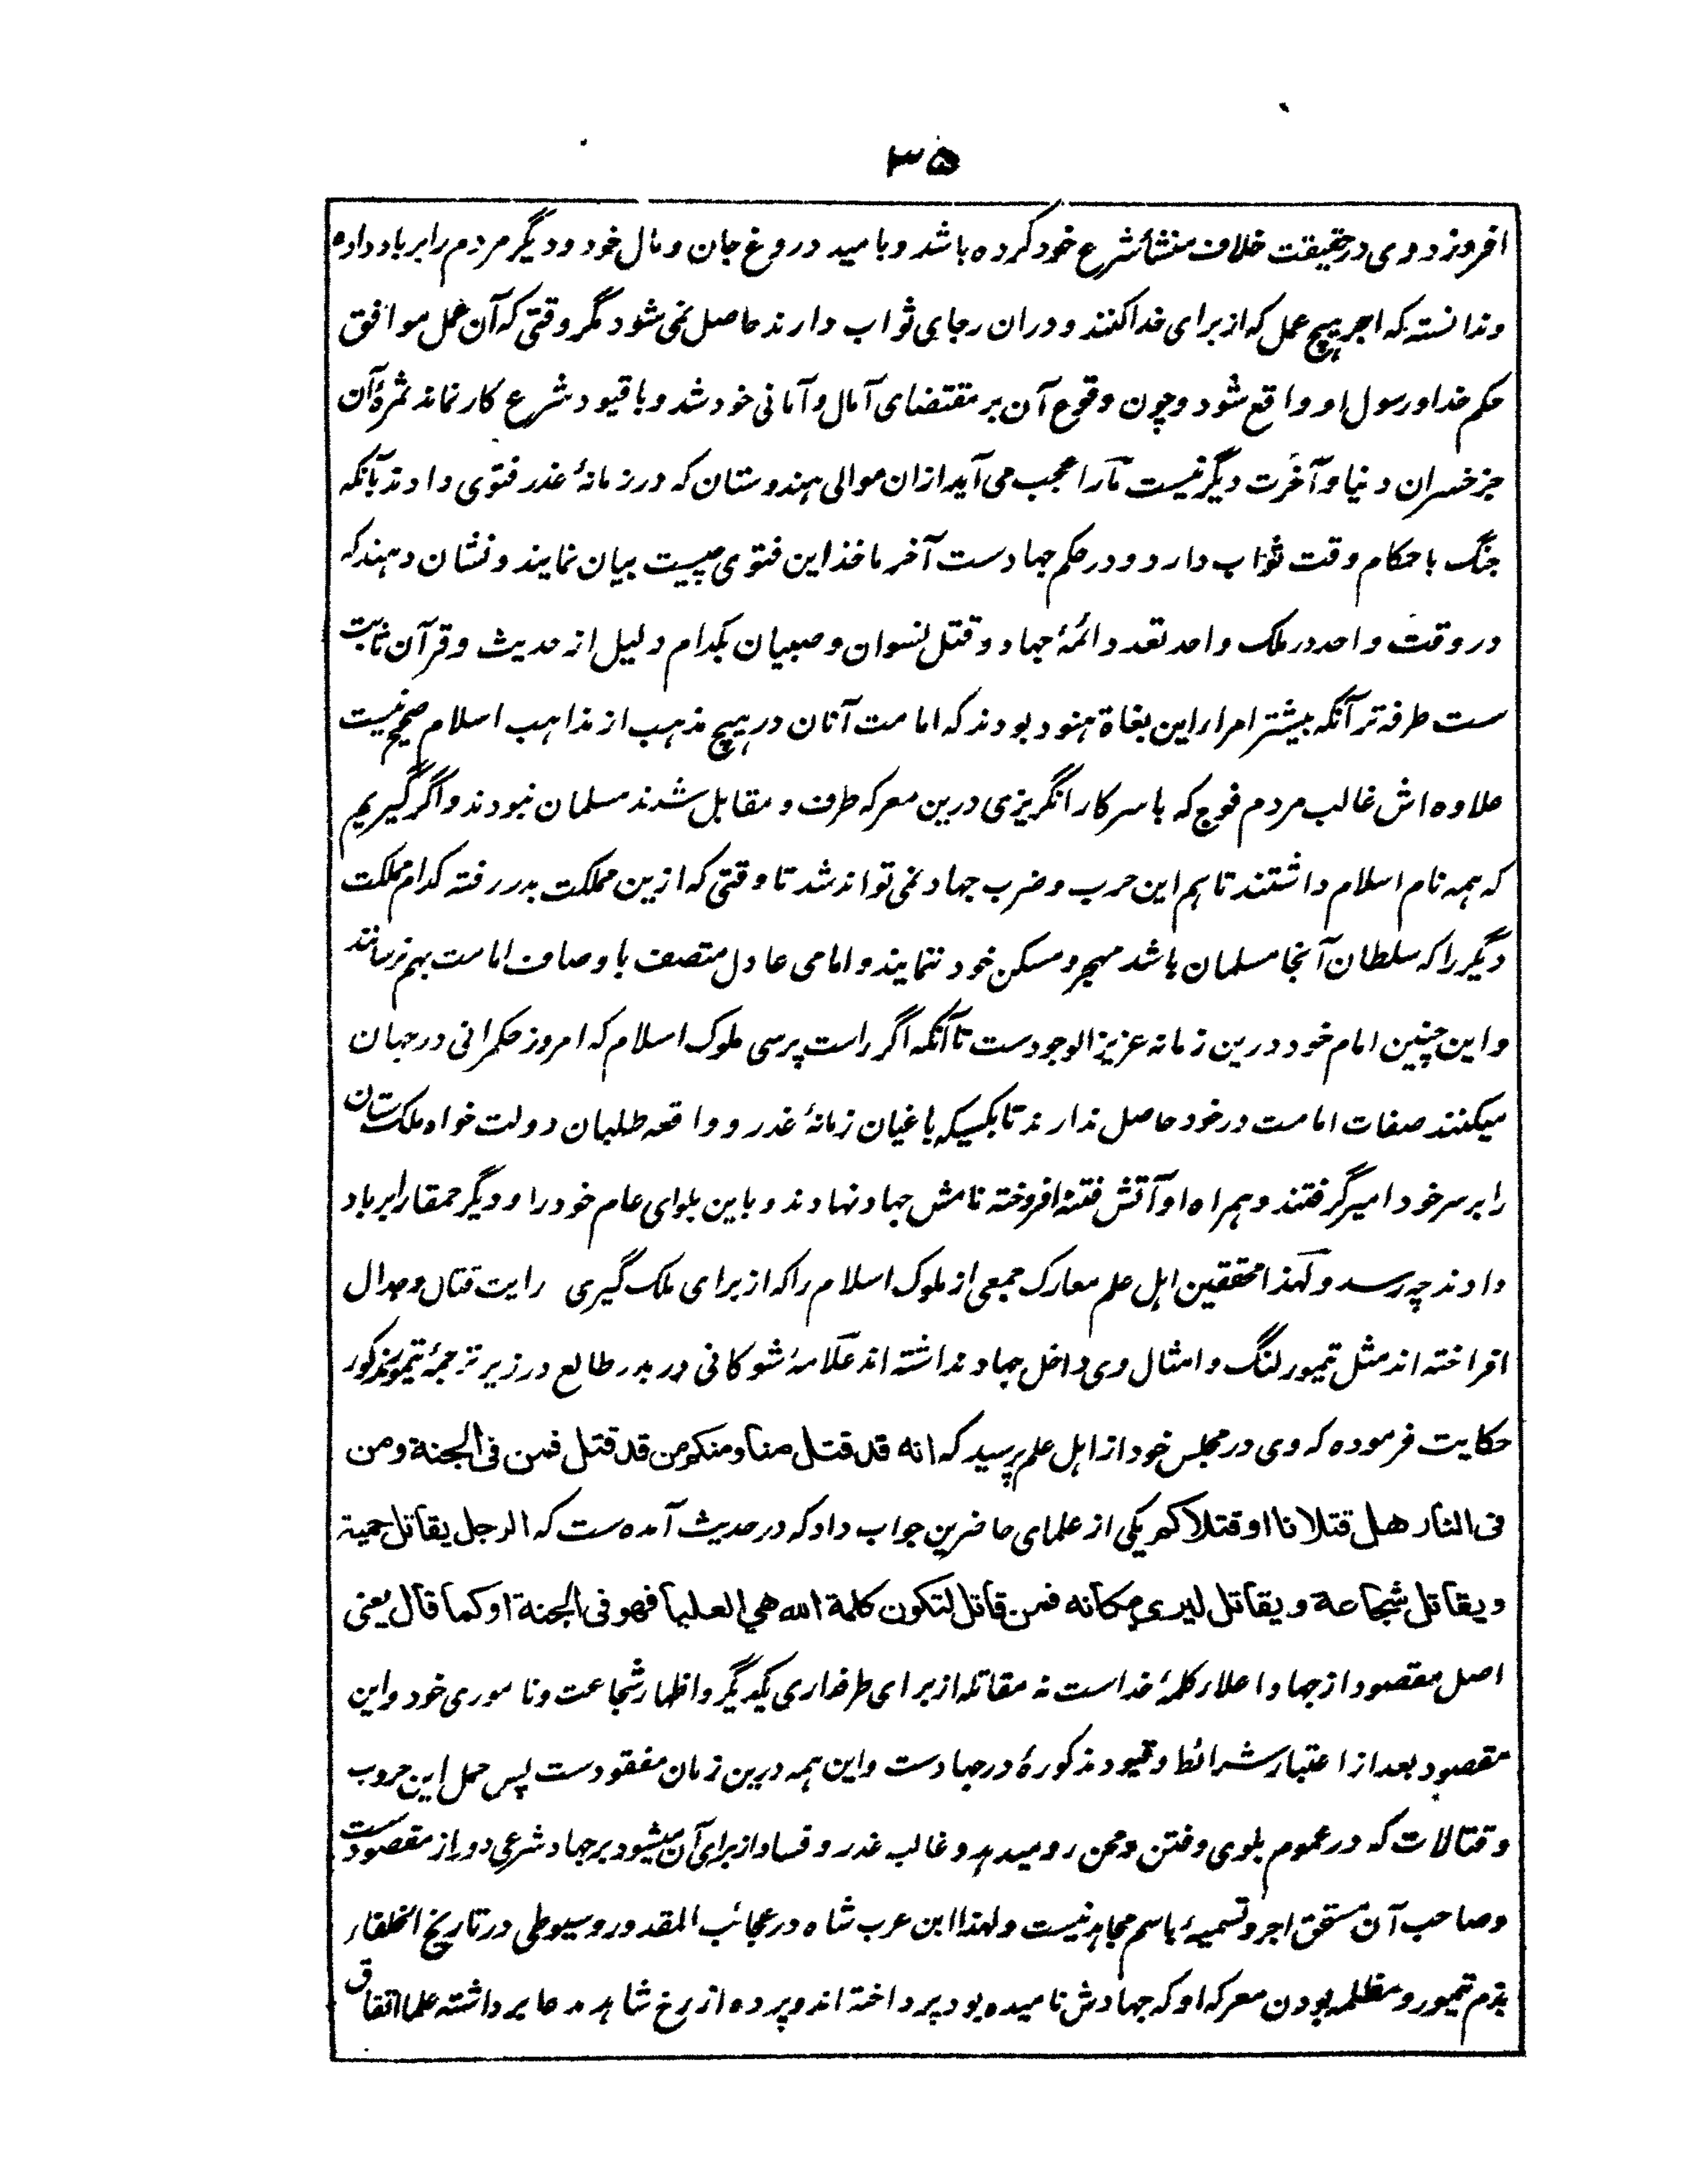 ۳۵
افروزد وی در حقیقت خلاف منشأ شرع خود کرده باشد و بامید دروغ جان و مال خود و دیگر مردم را برباد داده
و ندانسته که اجر هیچ عمل که از برای خدا کنند و دران رجای ثواب دارند حاصل نمی شود مگر وقتی که آن عمل موافق
حکم خدا و رسول او واقع شود و چون وقوع آن بر مقتضای آمال و آمانی خود شد و با قیود شرع کار نماند ثمرهٔ آن
جز خسران دنیا و آخرت دیگر نیست ما را عجب می آید ازان موالی هندوستان که در زمانهٔ غدر فتوی دادند بآنکه
جنگ با حکام وقت ثواب دارد و در حکم جهادست آخر ماخذ این فتوی چیست بیان نمایند و نشان دهند که
در وقت واحد در ملک واحد تعدد ائمهٔ جهاد و قتل نسوان و صبیان بکدام دلیل از حدیث و قرآن ثابت
ست طرفه تر آنکه بیشتر امرار این بغاة هنود بودند که امامت آنان در هیچ مذهب از مذاهب اسلام صحیح نیست
علاوه اش غالب مردم فوج که با سرکار انگریزی درین معرکه طرف و مقابل شدند مسلمان نبودند و اگر گیریم
که همه نام اسلام داشتند تا هم این حرب و ضرب جهاد نمی تواند شد تا وقتی که ازین مملکت بدر رفته کدام مملکت
دیگر را که سلطان آنجا مسلمان باشد مهجر و مسکن خود ننمایند و امامی عادل متصف باوصاف امامت بهم نرسانند
و این چنین امام خود درین زمانه عزیز الوجودست تا آنکه اگر راست پرسی ملوک اسلام که امروز حکمرانی در جهان
میکنند صفات امامت در خود حاصل ندارند تا بکسیکه باغیان زمانهٔ غدر و واقعه طلبان دولت خواه ملک ستان
را بر سر خود امیر گرفتند و همراه او آتش فتنه افروخته نامش جهاد نهادند و باین بلوای عام خود را و دیگر حمقا را برباد
دادند چه رسد و لهذا محققین اهل علم معارک جمعی از ملوک اسلام را که از برای ملک گیری رایت قتال و جدال
افراخته اند مثل تیمور لنگ و امثال وی داخل جهاد نداشته اند علامهٔ شوکانی در بدر طالع در زیر ترجمهٔ تیمور مذکور
حکایت فرموده که وی در مجلس خود از اهل علم پرسید که انه قد قتل منا و منکم من قد قتل فمن فی الجنة و من
فی النار هل قتلانا او قتلاکم یکی از علمای حاضرین جواب داد که در حدیث آمده ست که الرجل یقاتل حمیة
و یقاتل شجاعة و یقاتل لیری مکانه فمن قاتل لتکون کلمة الله هی العلیا فهو فی الجنة او کما قال یعنی
اصل مقصود از جهاد اعلاء کلمهٔ خداست نه مقاتله از برای طرفداری یکدیگر و اظهار شجاعت و ناموری خود و این
مقصود بعد از اعتبار شرائط و قیود مذکورهٔ در جهادست و این همه درین زمان مفقودست پس حمل این حروب
و قتالات که در عموم بلوی و فتن و محن رو میدهد و غالب غدر و فساد از برای آن میشود بر جهاد شرعی دور از مقصودست
و صاحب آن مستحق اجر و تسمیهٔ باسم مجاهد نیست و لهذا ابن عرب شاه در عجائب المقدور و سیوطی در تاریخ الخلفاء
بذم تیمور و مظلمه بودن معرکه او که جهادش نامیده بود پرداخته اند و پرده از رخ شاهد مدعا برداشته علما اتفاق